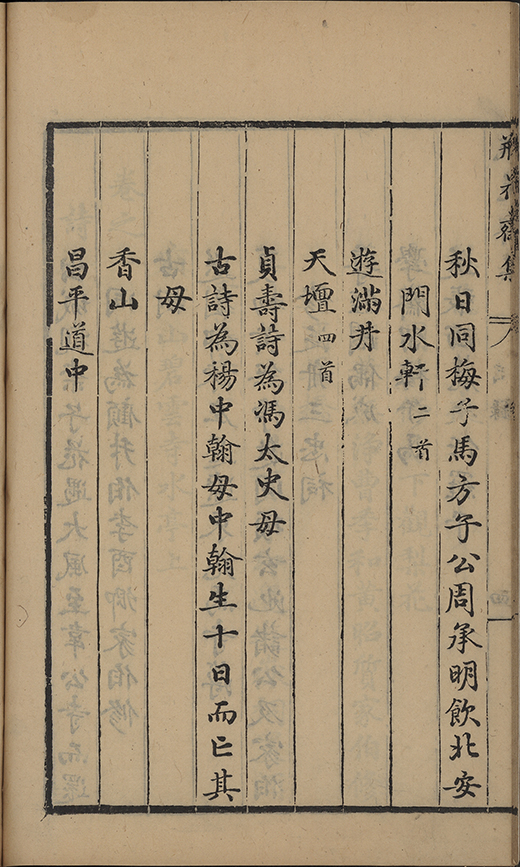 秋日同梅子馬方子公周承明飲北安
門水軒二首
遊滿井
天壇四首
貞壽詩為馮太史母
古詩為楊中翰母中翰生十日而亡其
母
香山
昌平道中